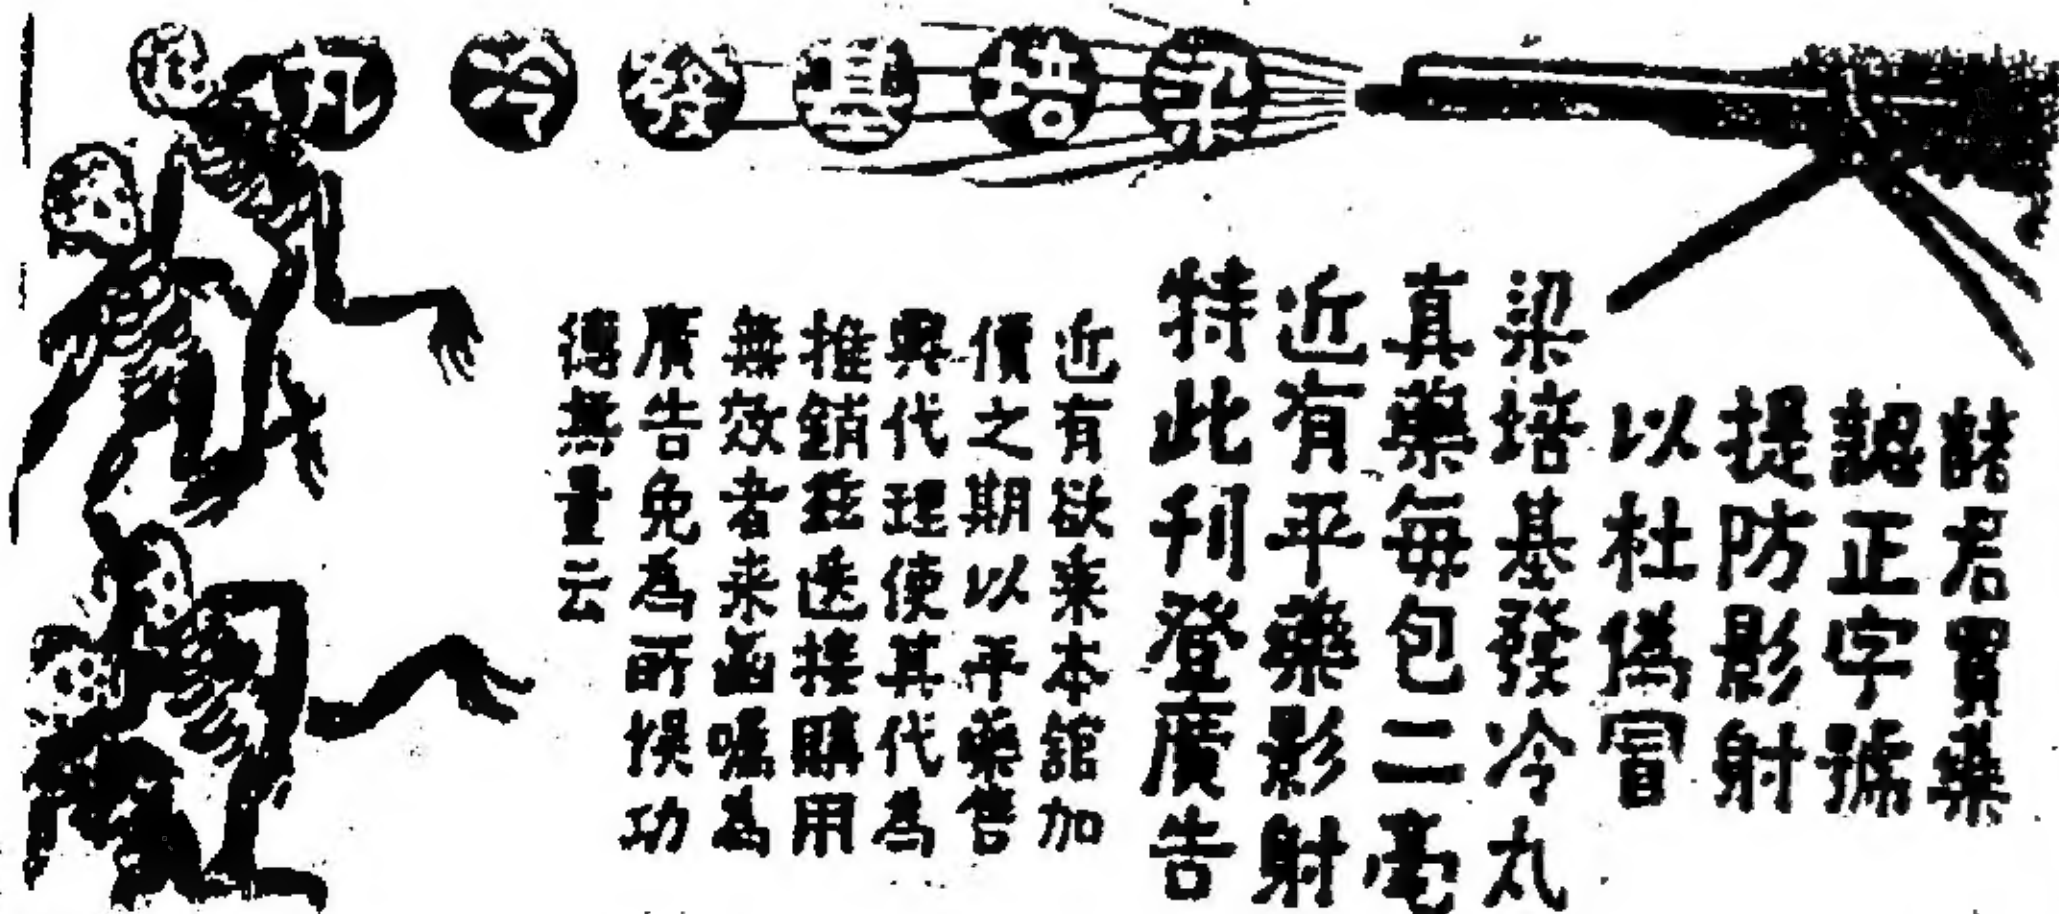 梁培基發冷丸
諸君買藥
認正字號
提防影射
以杜偽冒
梁培基發冷丸
真藥每包二毫
近有平藥影射
特此刊登廣告
近有欲乘本舘加
價之期以平藥售
與代理使其代為
推銷 送接購用
無效者来函囑為
廣告免為所悞功
德無量云